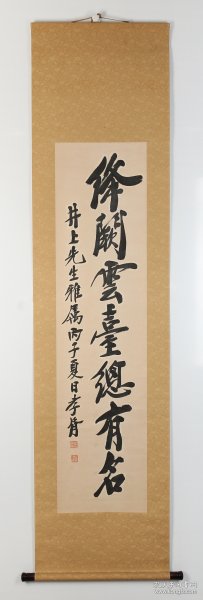 絳闕雲臺總有名
井上先生雅屬丙子夏日李